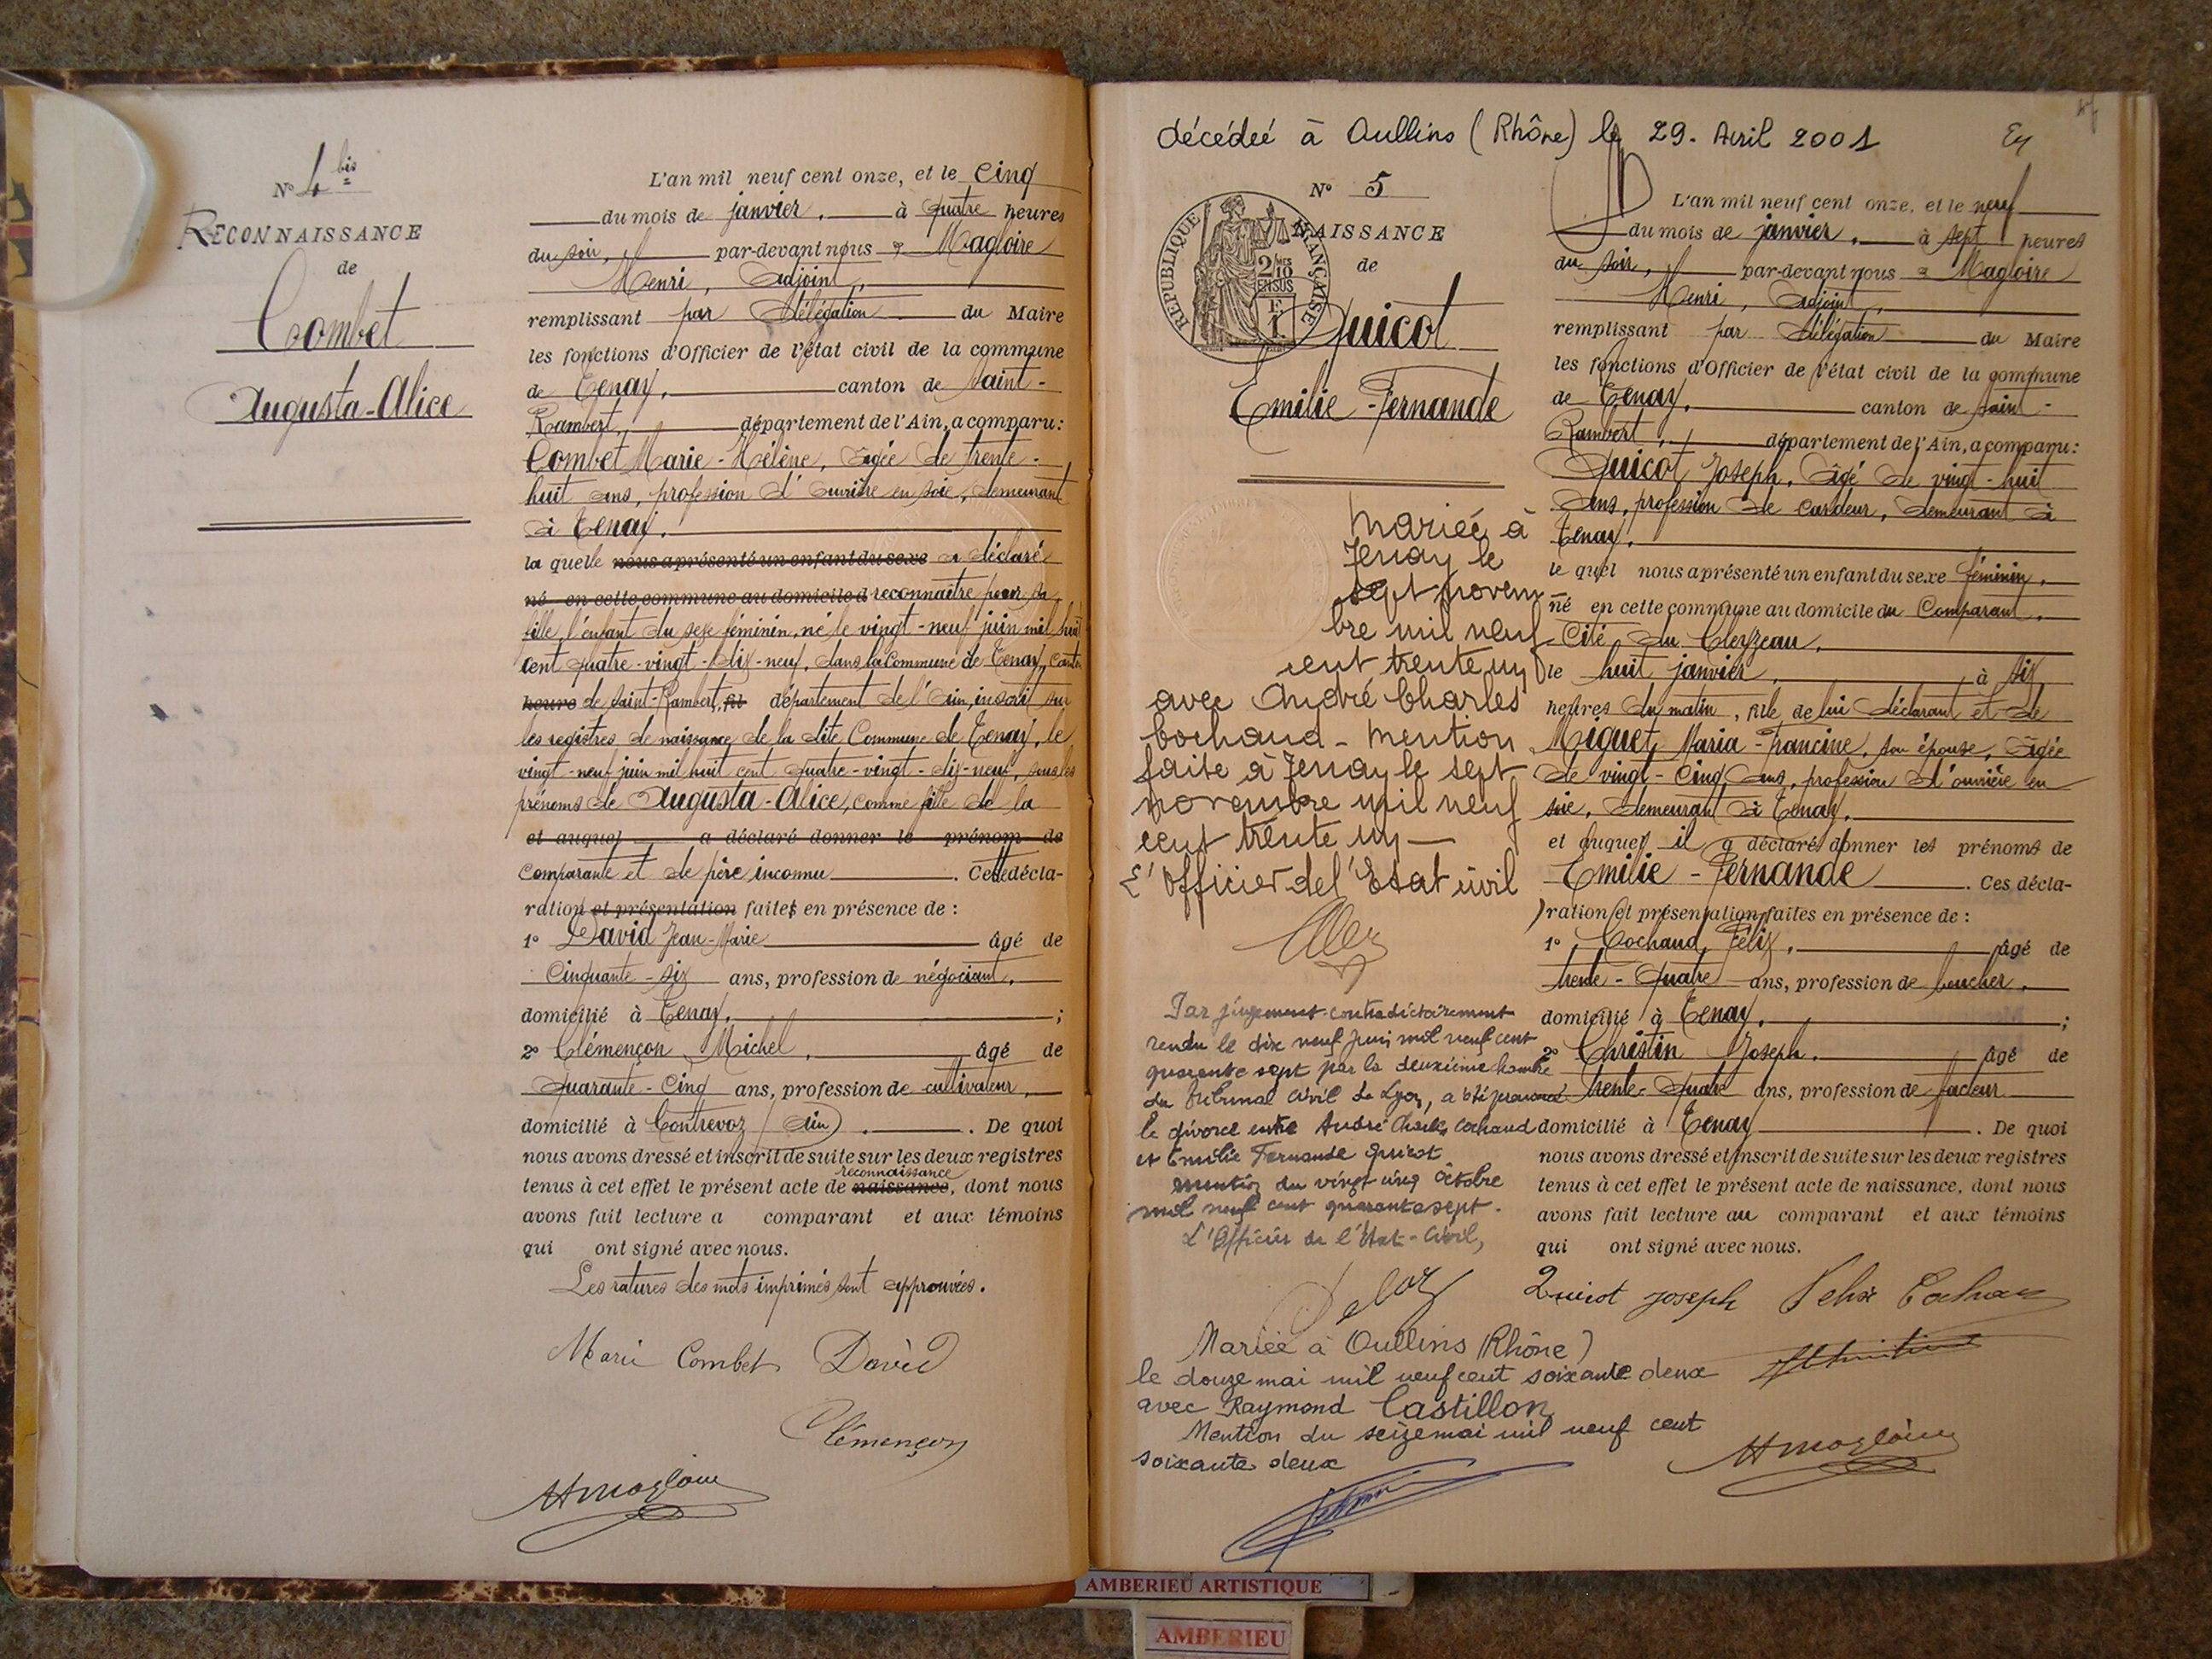 N° 4 bis
RECONNAISSANCE
de
Combet
Augusta-Alice
L'an mil neuf cent onze, et le cinq
du mois de janvier, à quatre heures
du soir, par-devant nous Magloire
Henri, adjoint,
remplissant par délégation du Maire
les fonctions d'Officier de l'état civil de la commune
de Tenay, canton de Saint-
Rambert, département de l'Ain, a comparu:
Combet Marie-Hélène, âgée de trente-
huit ans, profession d'ouvrière en soie, demeurant
à Tenay.
la quelle nous a présenté un enfant du sexe a déclaré
né en cette commune au domicile d reconnaître pour sa
fille, l'enfant du sexe féminin, né le vingt-neuf juin mil huit
cent quatre-vingt-dix-neuf, dans la Commune de Tenay, canton
heure de Saint-Rambert, département de l'Ain, inscrit sur
les registres de naissance de la dite Commune de Tenay, le
vingt-neuf juin mil huit cent quatre-vingt-dix-neuf, sous les
prénoms de Augusta-Alice, comme fille de la
et auquel a déclaré donner le prénom de
comparante et de père inconnu. Cette décla-
ration et présentation faites en présence de :
1° David Jean-Marie âgé de
Cinquante-six ans, profession de négociant,
domicilié à Tenay, ;
2° Clémençon Michel, âgé de
Quarante-Cinq ans, profession de cultivateur,
domicilié à Contrevoz (Ain). De quoi
nous avons dressé et inscrit de suite sur les deux registres
reconnaissance
tenus à cet effet le présent acte de naissance, dont nous
avons fait lecture a comparant et aux témoins
qui ont signé avec nous.
Les ratures des mots imprimés sont approuvées.
Marie Combet David
Clémençon
HMagloire
décédée à Oullins (Rhône) le 29. Avril 2001
N° 5
NAISSANCE
de
RÉPUBLIQUE FRANÇAISE
2/10 EN SUS
Quicot
Emilie-Fernande
Mariée à
Tenay le
sept novem
bre mil neuf
cent trente un
avec André Charles
Cochaud - Mention
faite à Tenay le sept
novembre mil neuf
cent trente un —
L'Officier de l'Etat civil
Par jugement contradictoirement
rendu le dix neuf juin mil neuf cent
quarante sept par la deuxième chambre
du Tribunal civil de Lyon, a été prononcé
le divorce entre André Charles Cochaud
et Emilie Fernande Quicot
mention du vingt cinq Octobre
mil neuf cent quarante sept.
L'Officier de l'Etat-Civil,
Mariée à Oullins (Rhône)
le douze mai mil neuf cent soixante deux
avec Raymond Castillon
Mention du seize mai mil neuf cent
soixante deux
L'an mil neuf cent onze, et le neuf
du mois de janvier, à sept heures
du soir, par-devant nous Magloire
Henri, adjoint,
remplissant par délégation du Maire
les fonctions d'Officier de l'état civil de la commune
de Tenay, canton de Saint-
Rambert, département de l'Ain, a comparu:
Quicot Joseph, âgé de vingt-huit
ans, profession de cardeur, demeurant à
Tenay,
le quel nous a présenté un enfant du sexe féminin,
né en cette commune au domicile du Comparant,
Cité du Cleyzeau,
le huit janvier, à six
heures du matin, fille de lui déclarant et de
Miguet Maria-Francine, son épouse, âgée
de vingt-cinq ans, profession d'ouvrière en
soie, demeurant à Tenay,
et auquel il a déclaré donner les prénoms de
Emilie-Fernande. Ces décla-
ration et présentation faites en présence de :
1° Cochaud Félix, âgé de
trente-quatre ans, profession de boucher,
domicilié à Tenay, ;
2° Christin Joseph, âgé de
trente-quatre ans, profession de facteur
domicilié à Tenay. De quoi
nous avons dressé et inscrit de suite sur les deux registres
tenus à cet effet le présent acte de naissance, dont nous
avons fait lecture au comparant et aux témoins
qui ont signé avec nous.
Quicot Joseph Felix Cochaud
HMagloire
AMBERIEU ARTISTIQUE
AMBERIEU